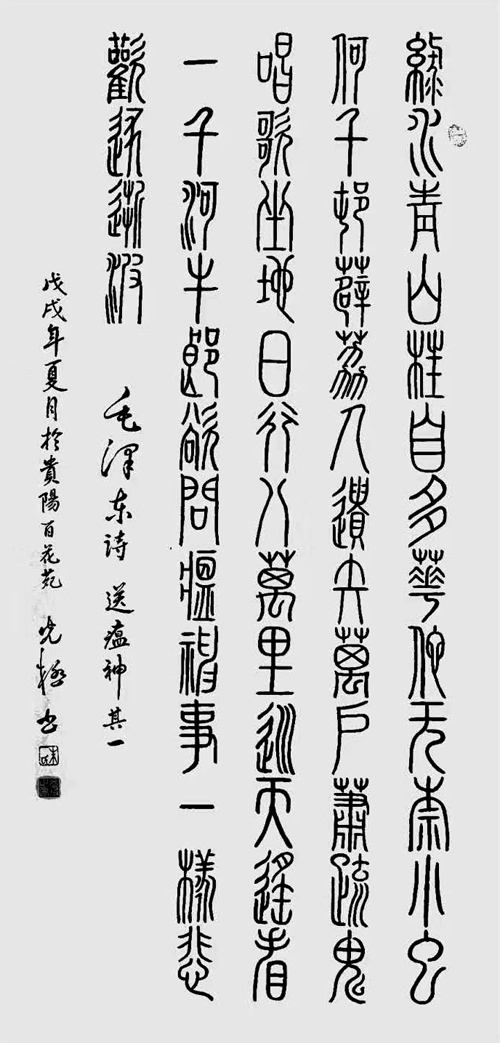 綠水青山枉自多華佗无奈小虫
何千邨薜荔人遺矢萬户蕭疏鬼
唱歌坐地日行八萬里巡天遙看
一千河牛郎欲問瘟神事一樣悲
歡逐逝波
毛澤东詩 送瘟神 其一
戊戌年夏月於貴陽百花苑 书